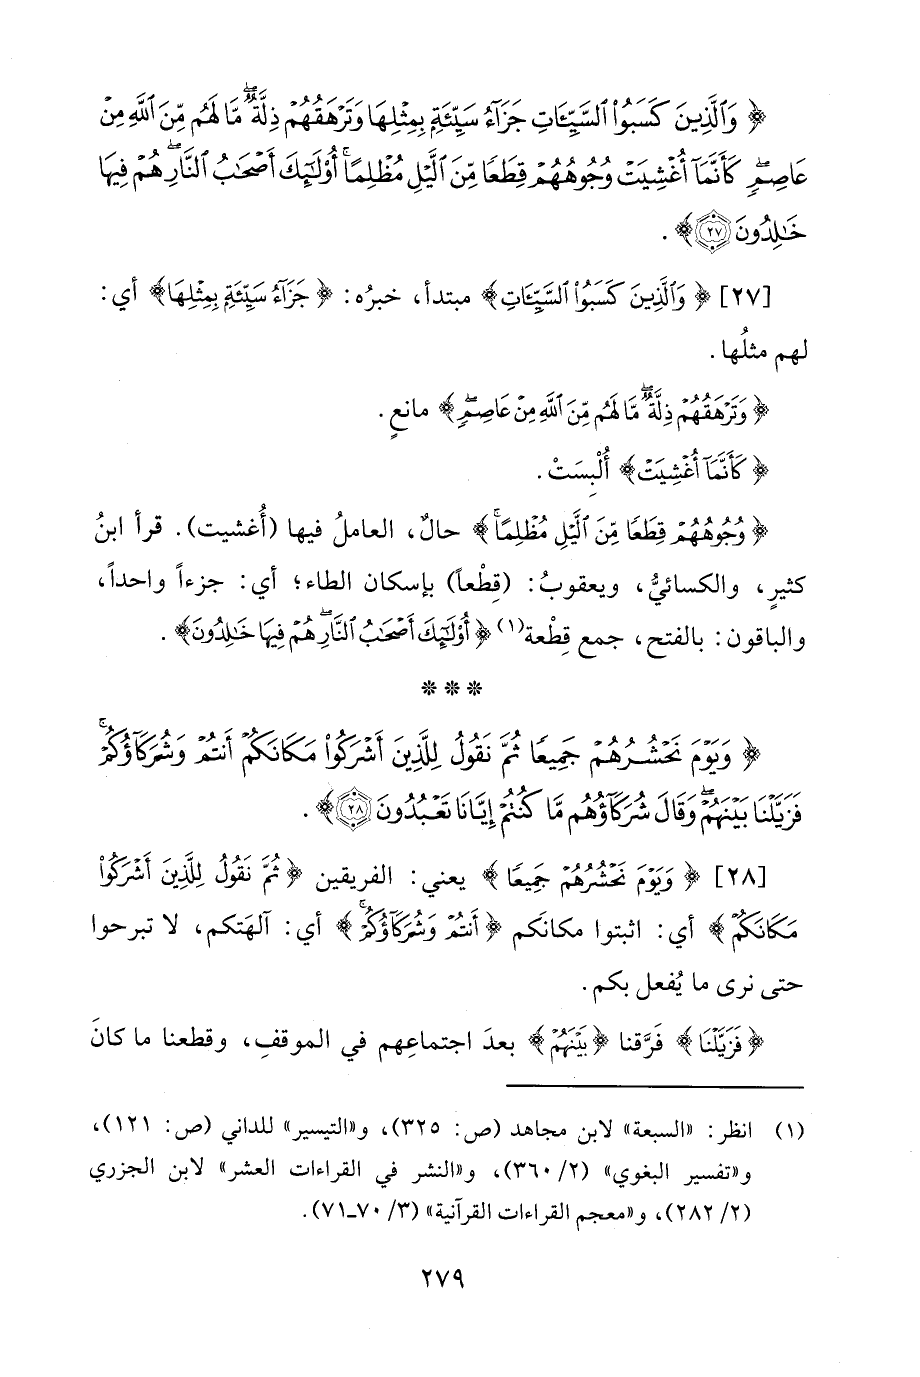 ﴿ وَالَّذِينَ كَسَبُوا۟ السَّيِّـَٔاتِ جَزَآءُ سَيِّئَةٍۭ بِمِثْلِهَا وَتَرْهَقُهُمْ ذِلَّةٌۖ مَّا لَهُم مِّنَ اللَّهِ مِنْ
عَاصِمٍۖ كَأَنَّمَآ أُغْشِيَتْ وُجُوهُهُمْ قِطَعًا مِّنَ الَّيْلِ مُظْلِمًاۚ أُو۟لَٰٓئِكَ أَصْحَٰبُ النَّارِۖ هُمْ فِيهَا
خَٰلِدُونَ ٢٧ ﴾ .
[٢٧] ﴿ وَالَّذِينَ كَسَبُوا۟ السَّيِّـَٔاتِ ﴾ مبتدأ، خبرُه: ﴿ جَزَآءُ سَيِّئَةٍۭ بِمِثْلِهَا ﴾ أي:
لهم مثلُها .
﴿ وَتَرْهَقُهُمْ ذِلَّةٌۖ مَّا لَهُم مِّنَ اللَّهِ مِنْ عَاصِمٍۖ ﴾ مانعٍ .
﴿ كَأَنَّمَآ أُغْشِيَتْ ﴾ أُلْبِسَتْ .
﴿ وُجُوهُهُمْ قِطَعًا مِّنَ الَّيْلِ مُظْلِمًاۚ ﴾ حالٌ، العاملُ فيها (أُغشيت). قرأ ابنُ
كثيرٍ، والكسائيُّ، ويعقوبُ: (قِطْعاً) بإسكان الطاء؛ أي: جزءاً واحداً،
والباقون: بالفتح، جمع قِطْعة(١) ﴿ أُو۟لَٰٓئِكَ أَصْحَٰبُ النَّارِۖ هُمْ فِيهَا خَٰلِدُونَ ﴾ .
* * *
﴿ وَيَوْمَ نَحْشُرُهُمْ جَمِيعًا ثُمَّ نَقُولُ لِلَّذِينَ أَشْرَكُوا۟ مَكَانَكُمْ أَنتُمْ وَشُرَكَآؤُكُمْۚ
فَزَيَّلْنَا بَيْنَهُمْۖ وَقَالَ شُرَكَآؤُهُم مَّا كُنتُمْ إِيَّانَا تَعْبُدُونَ ٢٨ ﴾ .
[٢٨] ﴿ وَيَوْمَ نَحْشُرُهُمْ جَمِيعًا ﴾ يعني: الفريقين ﴿ ثُمَّ نَقُولُ لِلَّذِينَ أَشْرَكُوا۟
مَكَانَكُمْ ﴾ أي: اثبتوا مكانَكم ﴿ أَنتُمْ وَشُرَكَآؤُكُمْۚ ﴾ أي: آلهَتكم، لا تبرحوا
حتى نرى ما يُفعل بكم .
﴿ فَزَيَّلْنَا ﴾ فَرَّقنا ﴿ بَيْنَهُمْ ﴾ بعدَ اجتماعِهم في الموقفِ، وقطعنا ما كانَ
(١) انظر: «السبعة» لابن مجاهد (ص: ٣٢٥)، و«التيسير» للداني (ص: ١٢١)،
و«تفسير البغوي» (٢/ ٣٦٠)، و«النشر في القراءات العشر» لابن الجزري
(٢/ ٢٨٢)، و«معجم القراءات القرآنية» (٣/ ٧٠-٧١).
٢٧٩